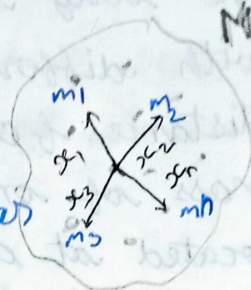 m1
m2
x1
x2
x3
xn
m3
mn